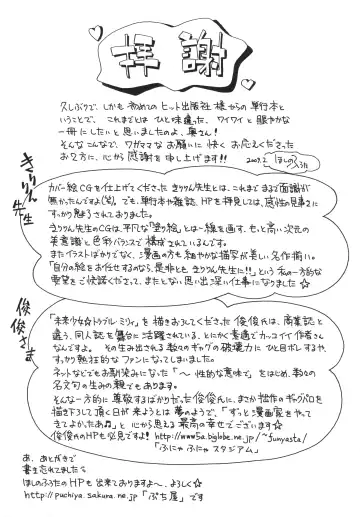 拝謝
久しぶりで、しかも初めてのヒット出版社様からの単行本と
いうことで、これまでとはひと味違った、ワイワイと賑やかな
一冊にしたいと思いましたのよ、奥さん!
そんなこんなで、ワガママなお願いに快くお応えくださった
お2方に、心から感謝を申し上げます!!
2007.2 ほしのふうた
きりりん先生
カバー絵CGを仕上げてくださったきりりん先生とは、これまでまるで面識が
無かったんですよ(笑)。でも、単行本や雑誌、HPを拝見しては、感性の見事さに
すっかり魅了されておりました。
きりりん先生のCGは、平凡な「塗り絵」とは一線を画す、もっと高い次元の
美意識と色彩バランスで構成されているんです。
またイラストばかりでなく、漫画の方も細やかな描写が美しい名作揃い。
「自分の絵をお任せするのなら、是非ともきりりん先生に!!」という私の一方的な
要望をご快諾くださって、またとない思い出深い仕事になりました☆
俊俊さま
「未来少女☆トラブル・ミリィ」を描きおろしてくださった俊俊氏は、商業誌と
違う、同人誌を舞台に活躍されている、とにかく素適でカッコイイ作者さん
なんですよ。その生み出される数々のギャグの破壊力にひと目ボレするや、
すっかり熱狂的なファンになってしまいました。
ネットなどでもお馴染みになった「〜性的な意味で」をはじめ、数々の
名文句の生みの親でもあります。
そんな一方的に尊敬するばかりだった俊俊氏に、まさか拙作のギャグパロを
描き下ろして頂く日が来ようとは夢のようで、「ずっと漫画家をやって
きてよかったあ♪」と心から思える最高の幸せでございます☆
俊俊氏のHPも必見ですよ! http://www5a.biglobe.ne.jp/~funyasta/
「ふにゃふにゃスタジアム」
あ、あとがきで
書き忘れてましたら
ほしのふうたのHPも出来ておりますよ〜、よろしく☆
http://puchiya.sakura.ne.jp 「ぷち屋」です